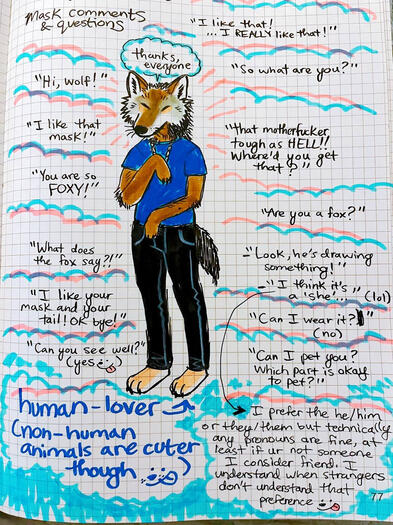 Mask comments
& questions
"I like that!
... I REALLY like that!"
thanks,
everyone
"Hi, wolf!"
"So what are you?"
"I like that
mask!"
"That motherfucker
tough as HELL!!
Where'd you get
that?"
"You are so
FOXY!"
"Are you a fox?"
"What does
the fox say?!"
-"Look, he's drawing
something!"
-"I think it's
a 'she'..." (lol)
"I like your
mask and your
tail! OK bye!"
"Can I wear it?"
(no)
"Can you see well?"
(yes)
"Can I pet you?
Which part is okay
to pet?"
human-lover
(non-human
animals are cuter
though)
I prefer the he/him
or they/them but technically
any pronouns are fine, at
least if ur not someone
I consider friend. I
understand when strangers
don't understand that
preference
77